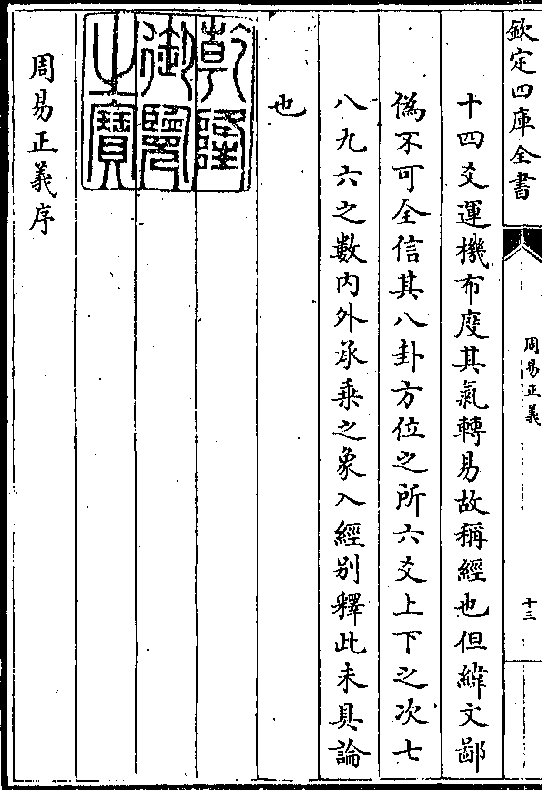 欽定四庫全書
周易正義
十三
十四爻運機布度其氣轉易故稱經也但緯文鄙
偽不可全信其八卦方位之所六爻上下之次七
八九六之數內外承乗之象入經別釋此未具論
也
乾隆
御覽
之寶
周易正義序